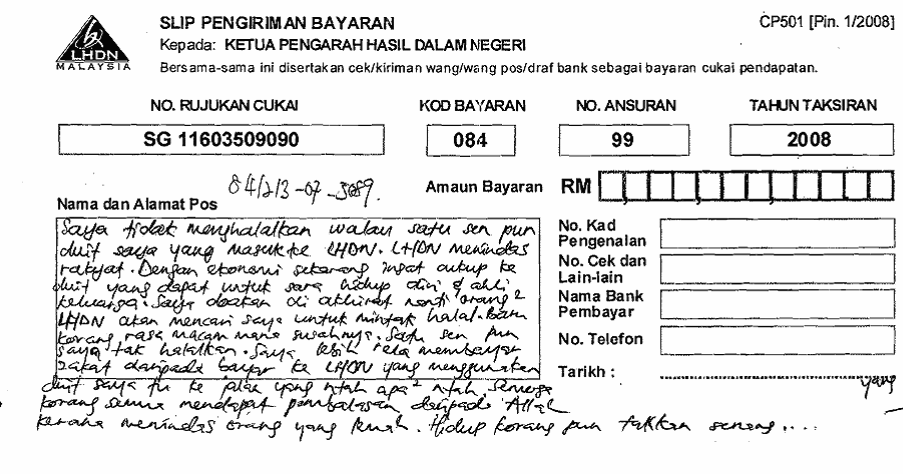 LHDN
MALAYSIA
SLIP PENGIRIMAN BAYARAN
CP501 [Pin. 1/2008]
Kepada: KETUA PENGARAH HASIL DALAM NEGERI
Bersama-sama ini disertakan cek/kiriman wang/wang pos/draf bank sebagai bayaran cukai pendapatan.
NO. RUJUKAN CUKAI KOD BAYARAN NO. ANSURAN TAHUN TAKSIRAN
SG 11603509090 084 99 2008
Amaun Bayaran RM
Nama dan Alamat Pos
Saya tidak menghalalkan walau satu sen pun
duit saya yang masuk ke LHDN. LHDN menindas
rakyat. Dengan ekonomi sekarang ingat cukup ke
duit yang dapat untuk sara hidup diri & ahli
keluarga. Saya doakan di akhirat nanti orang2
LHDN akan mencari saya untuk mintak halal. Baru
korang rasa macam mana susahnya. Satu sen pun
saya tak halalkan. Saya lebih rela membayar
zakat daripada bayar ke LHDN yang menggunakan
duit saya tu ke jalan yang ntah apa2 ntah. Semoga
korang semua mendapat pembalasan daripada Allah
kerana menindas orang yang lemah. Hidup korang pun takkan senang....
yang
No. Kad
Pengenalan
No. Cek dan
Lain-lain
Nama Bank
Pembayar
No. Telefon
Tarikh :